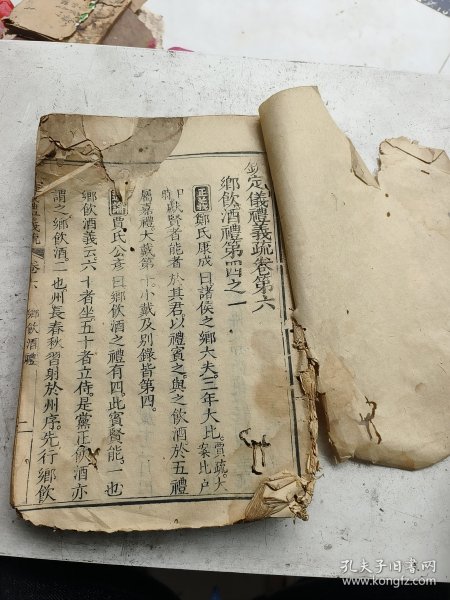 欽定儀禮義疏卷第六
鄉飲酒禮第四之一
正義 鄭氏康成曰諸侯之鄉大夫三年大比賈疏大比案比戶
獻賢者能者於其君以禮賓之與之飲酒於五禮
屬嘉禮大戴第十小戴及別錄皆第四
賈氏公彥曰鄉飲酒之禮有四此賓賢能一也
鄉飲酒義云六十者坐五十者立侍是黨正飲酒亦
謂之鄉飲酒二也州長春秋習射於州序先行鄉飲
禮義疏 卷六 鄉飲酒禮 一
孔夫子旧书网
www.kongfz.com